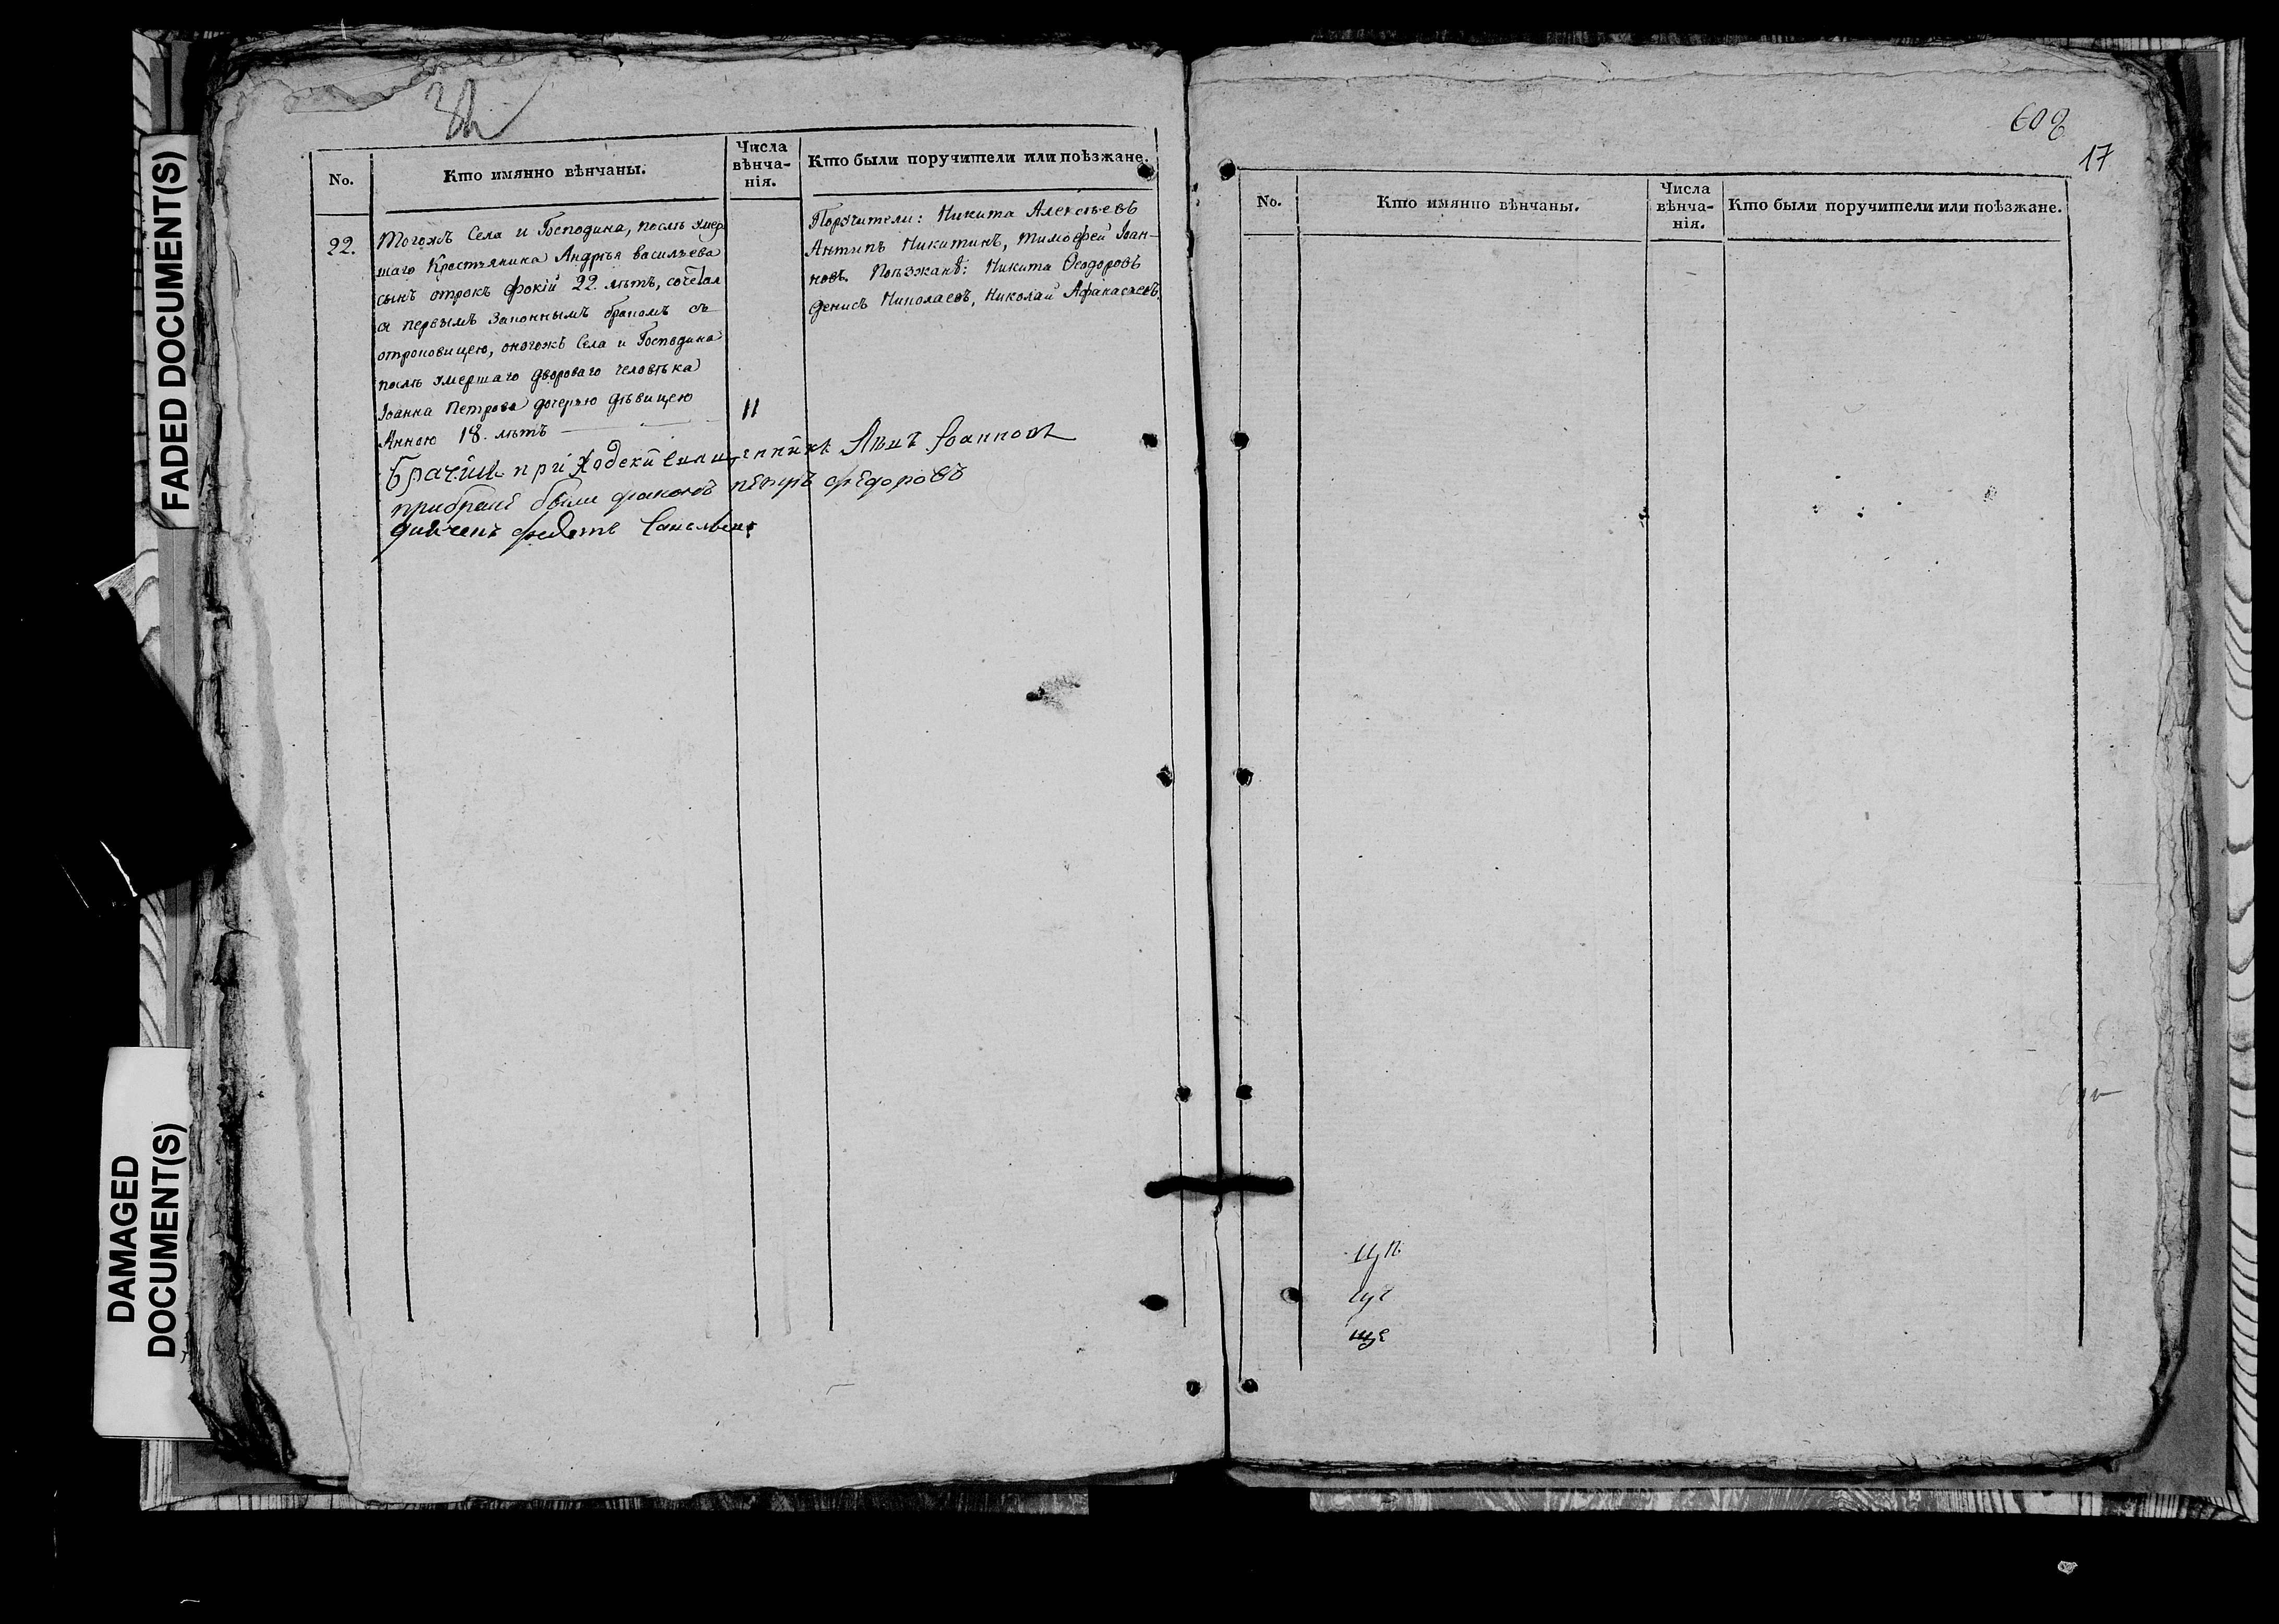 FADED DOCUMENT(S)
DAMAGED
DOCUMENT(S)
No.
Кто имянно вѣнчаны.
Числа
вѣнча-
нія.
Кто были поручители или поѣзжане.
22.
Тогожъ Села и Господина, послѣ умер
шаго Крестьянина Андрѣя васильева
сынъ отрокъ Фокій 22. лѣтъ, сочетал
ся первымъ Законнымъ бракомъ съ
отроковицею, оногожъ Села и Господина
послѣ умершаго двороваго человѣка
Іоанна Петрова дочерью дѣвицею
Анною 18. лѣтъ
11
Поручители: Никита Алексѣевъ
Антипъ Никитинъ, Тимофей Іоан-
новъ. Поѣзжанѣ: Никита Ѳеодоровъ
Денисъ Николаевъ, Николай Афанасьевъ.
приходскй Іоанновъ
были петръ федоровъ
федотъ
608
17
No.
Кто имянно вѣнчаны.
Числа
вѣнча-
нія.
Кто были поручители или поѣзжане.